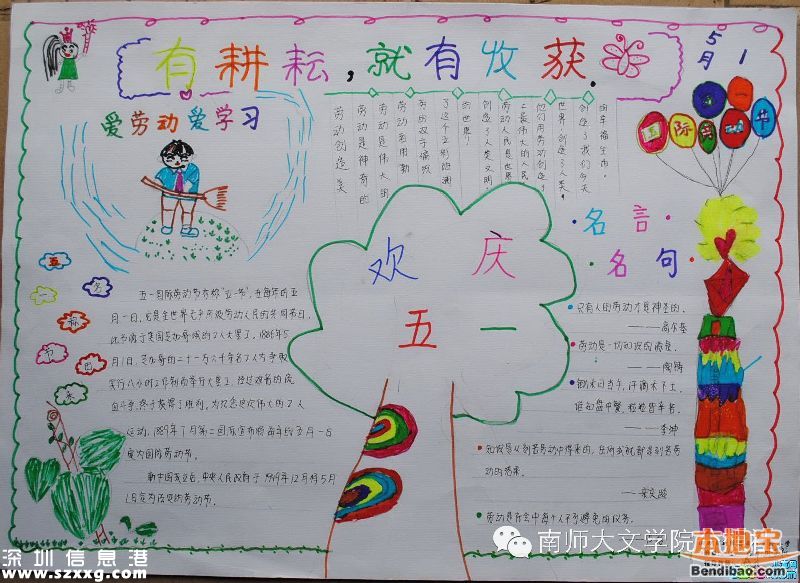 有耕耘，就有收获。
5月1
国际劳动节
爱劳动爱学习
劳动创造美
劳动是神奇的
劳动是伟大的
欢庆
五一
名言
名句
只有人的劳动才是神圣的。
——高尔基
劳动是一切知识的源泉。
——陶铸
锄禾日当午，汗滴禾下土。
谁知盘中餐，粒粒皆辛苦。
——李绅
知识是从刻苦劳动中得来的，任何成就都是刻苦劳
动的结果。
——宋庆龄
劳动是社会中每个人不可避免的义务。
五一名称
节
由来
五一国际劳动节亦称“五一节”，在每年的五
月一日。它是全世界无产阶级劳动人民的共同节日。
此节源于美国芝加哥城的工人大罢工。1886年5
月1日，芝加哥的二十一万六千余名工人为争取
实行八小时工作制而举行大罢工，经过艰苦的流
血斗争，终于获得了胜利。为纪念这次伟大的工人
运动，1889年7月第二国际宣布将每年的五月一日
定为国际劳动节。
新中国成立后，中央人民政府于1949年12月将5月
1日定为法定的劳动节。
深圳信息港
www.szxxg.com
南师大文学院
本地宝
Bendibao.com